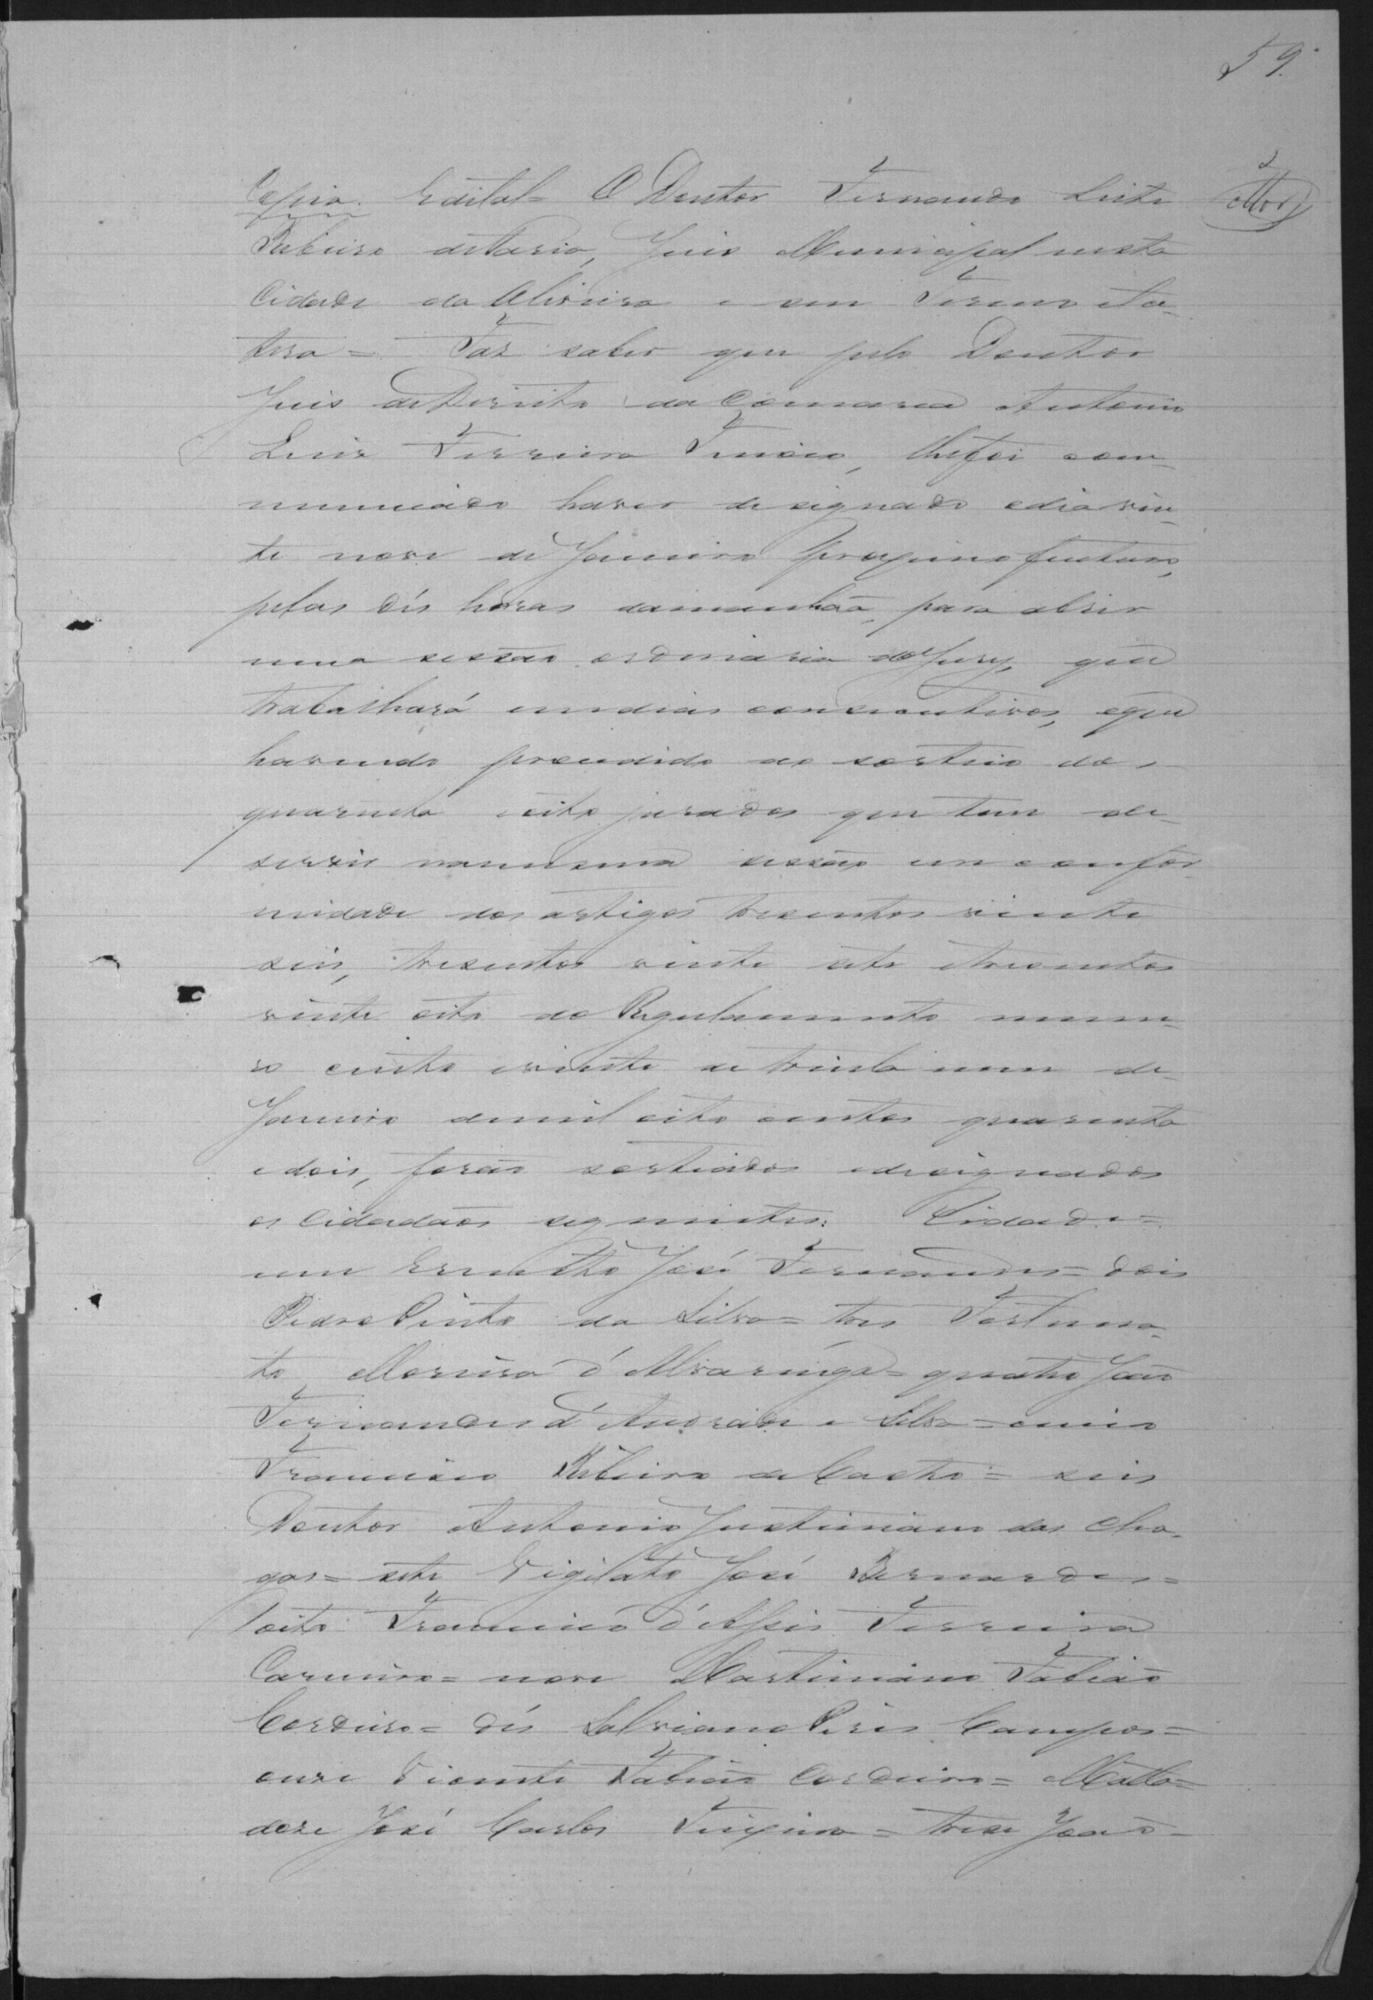 59.
Copia. Edital = O Doutor Fernando Leite
Ribeiro de Faria, Juis Municipal nesta
Cidade da Oliveira e seu Termo et cœ-
tera = Faz saber que pelo Doutor
Juis de Direito da Comarca Antonio
Luiz Ferreira Tinôco, lhe foi com-
municado haver designado o dia vin-
te nove de Janeiro proximo futuro,
pelas dés horas da manhãa, para abrir
uma sessão ordinaria do Jury, que
trabalhará em dias consecutivos, e que
havendo procedido ao sorteio dos
quarenta e oito jurados que tem de
servir na mesma sessão em confor-
midade dos artigos tresentos vinte
seis, tresentos vinte sete e tresentos
vinte oito do Regulamento nume-
ro cento e vinte de trinta e um de
Janeiro de mil oito centos quarenta
e dois, forão sorteados e designados
os Cidadãos seguintes: Cidade =
um Ernesto José Fernandes = dois
Pedro Pinto da Silva = tres Fortuna-
to Moreira d'Alvarenga = quatro João
Fernandes d'Andrade e Silva = cinco
Francisco Ribeiro de Castro = seis
Doutor Antonio Justiniano das Cha-
gas = sete Vigilato José Bernardes =
oito Francisco d'Assis Ferreira
Carneiro = nove Martiniano Fabião
Cordeiro = dés Salviano Pires Campos =
onze Vicente Fabião Cordeiro = Matta =
doze José Carlos Teixeira = treze João